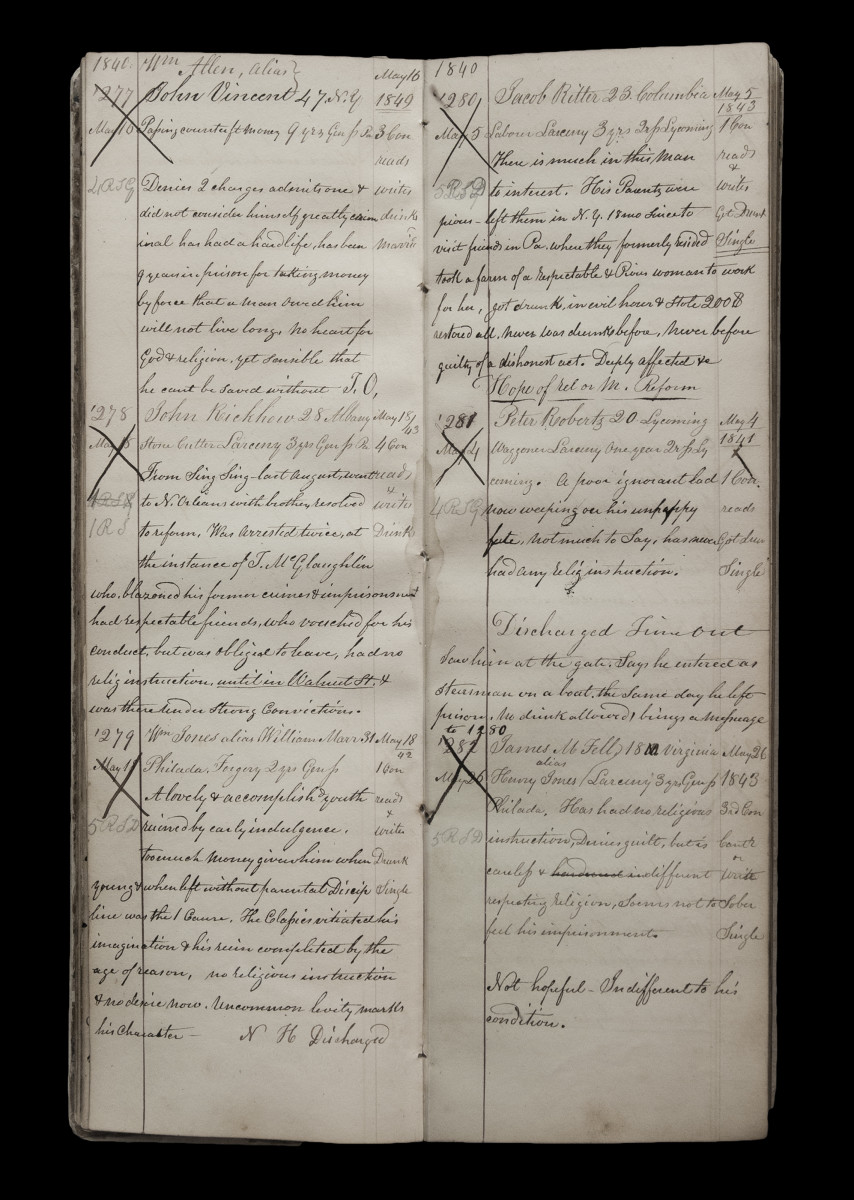 1840. Wm Allen, alias May 16
'277 John Vincent 47. N.Y. 1849
May 16 Passing counterft money 9 yrs Gen ss Pa 3 Con
reads
4 R S G Denies 2 charges admits one & writes
did not consider himself greatly crim drinks
inal has had a hard life, has been Married
9 years in prison for taking money
by force that a man owed him
will not live long, no heart for
God & religion. yet sensible that
he cant be saved without T.O,
'278 John Rickhow 28 Albany May 18/43
May 18 Stone Cutter Larceny 3 yrs Gen ss Pa 4 Con
From Sing Sing last August, went reads
&
4 R S G to N. Orleans with brother, resolved writes
1 R S to reform, Was arrested twice, at Drink
the instance of T. McGlaughlin
who, blazoned his former crimes & imprisonment
had respectable friends, who vouched for his
conduct, but was obliged to leave, had no
relig instruction, until in Walnut St. &
was there under Strong Convictions.
'279 Wm Jones alias William Marr 31 May 18
42
May 18 Philada. Forgery 2 yrs Gen ss 1 Con
A lovely & accomplishd youth reads
&
5 R S D ruined by early indulgence. writes
too much money given him when Drank
young & when left without parental Discip Single
line was the 1 Cause. The Classics vitiated his
imagination & his ruin completed by the
age of reason, no religious instruction
& no desire now. Uncommon levity marks
his Character — N H Discharged
1840
'280, Jacob Ritter 23. Columbia May 5
1843
May 5 Laborer Larceny 3 yrs 2r ss Lycoming 1 Con
There is much in this Man reads
&
5 R S D to interest. His Parents were writes
pious - left them in N.Y. 18 mo since to Got Drunk
visit friends in Pa. where they formerly resided Single
took a farm of a respectable & Pious woman to work
for her, got drunk, in evil hour & Stole 200 $
restored all. never was drunk before, never before
guilty of a dishonest act. Deeply affected &c
Hope of rel or M. Reform
'281 Peter Robertz 20 Lycoming May 4
1841
May 4 Waggoner Larceny One year 2r ss Ly
coming. A poor ignorant lad 1 Con.
4 R S G now weeping on his unhappy reads
fate, not much to Say, has never Got drun
had any relig instruction. Single
Discharged Time out
Saw him at the gate. Says he entered as
Steersman on a boat. the Same day he left
prison. No drink allowed, brings a message
to 1280
'282 James McFell 18 Virginia May 26
alias
May 26 Henry Jones Larceny 3 yrs Gen ss 1843
Philada. Has had no religious 3rd Con
5 R S D instruction, Denies guilt, but is Cant r
or
careless & hardened indifferent write
respecting religion, Seems not to Sober
feel his imprisonment. Single
Not hopeful - Indifferent to his
condition.